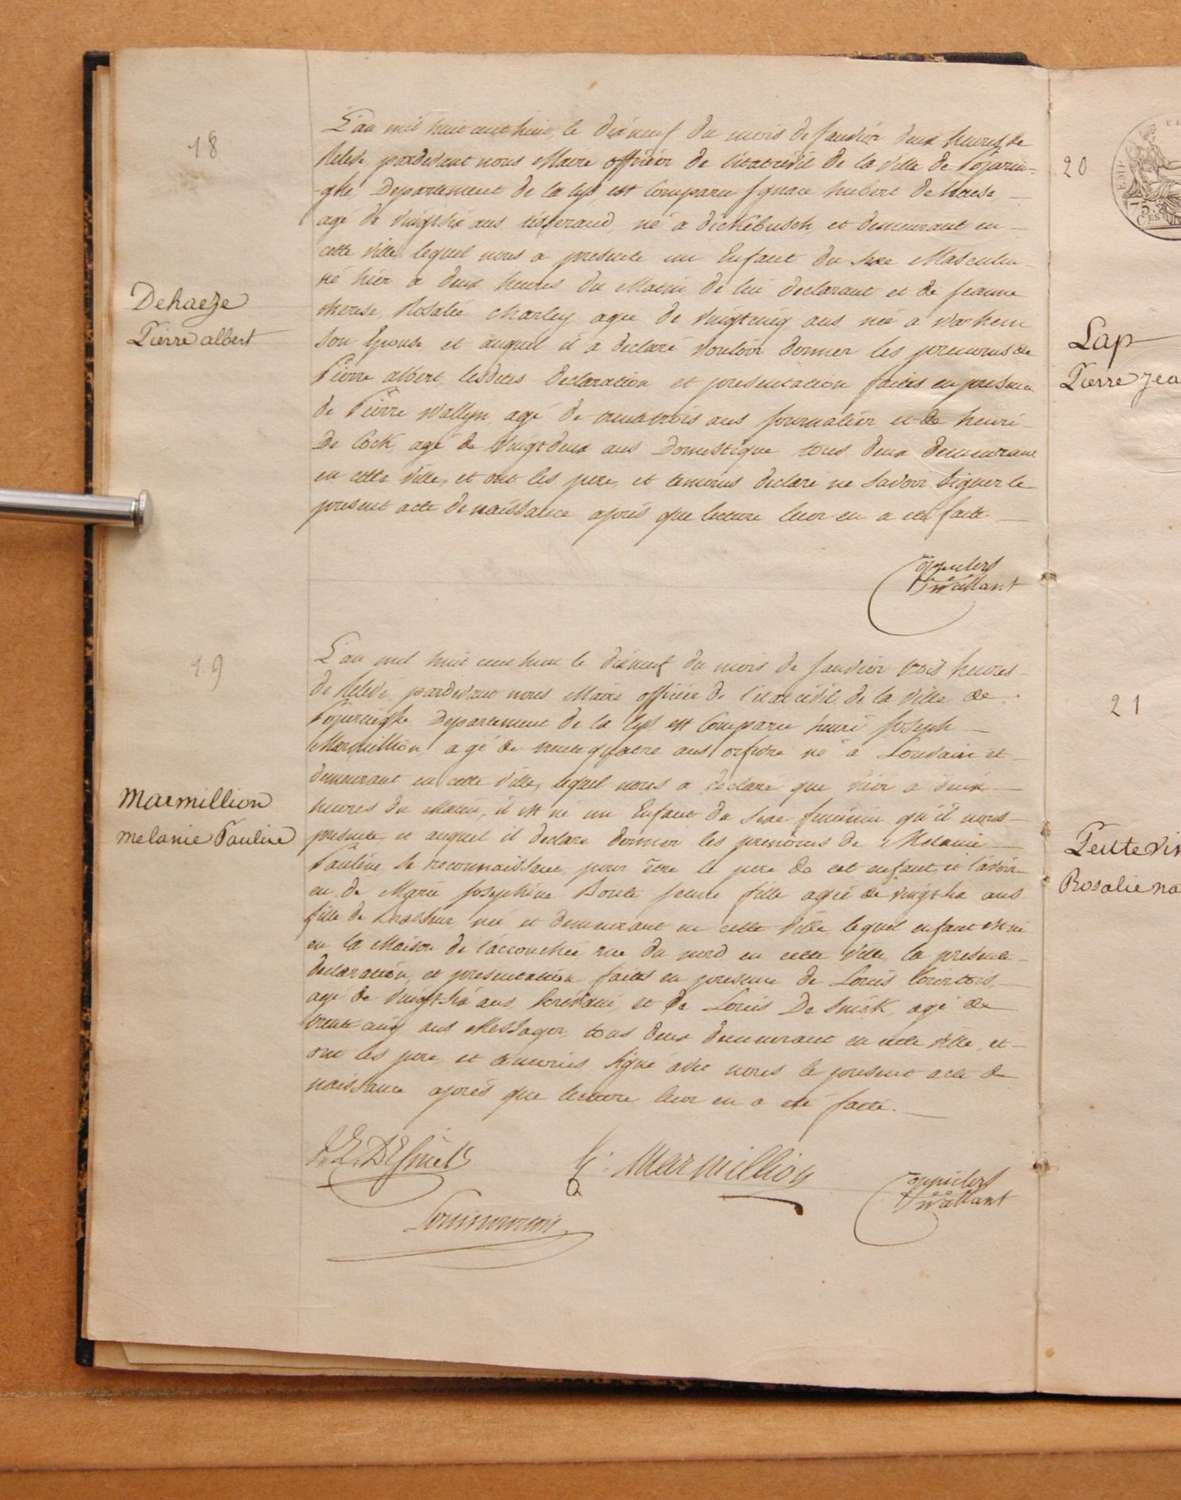 18
Dehaeze
Pierre albert
L'an mil huit cent huit, le dixneuf du mois de Janvier deux heures de
relevé pardevant nous Maire officier de l'état civil de la Ville de Poperin-
-ghe Département de la Lys, est Comparu Ignace hubert de haeze
agé de Vingt six ans tisserand, né a dickebusch et demeurant en
cette Ville, lequel nous a presenté un Enfant du Sexe Masculin
né hier a deux heures du Matin de lui declarant et de jeanne
therese, Rosalie Charley agée de Vingtcinq ans née a
Son Epouse et auquel il a declaré vouloir donner les prenoms de
Pierre albert, lesdites declaration et presentation faites en presence
de Pierre Wallyn agé de trentetrois ans journalier et de henri
De Cock, agé de Vingtdeux ans Domestique tous deux demeurant
en cette Ville, et ont les pere, et temoins declaré ne Savoir Signer le
present acte de naissance après que lecture leur en a eté faite.
Vaillant
19
Marmillion
melanie Pauline
L'an mil huit cent huit le dixneuf du mois de Janvier trois heures
de relevé, pardevant nous Maire officier de l'état civil de la Ville de
Poperinghe Département de la Lys est Comparu henri Joseph
Marmillion agé de quatre ans orfevre né a Louvain et
demeurant en cette Ville, lequel nous a déclaré que hier a deux
heures du Matin, il est né un Enfant du Sexe feminin qu'il nous
presente, et auquel il declare donner les prenoms de Melanie
Pauline, Se reconnaissant pour être le pere de cet enfant, et l'avoir
eu de Marie Josephine jeune fille agée de Vingt six ans
fille de née et demeurant en cette Ville lequel enfant est né
en la Maison de l'accouchée rue du nord en cette Ville, la presente
declaration, et presentation faites en presence de Louis
agé de Vingt six ans et de Louis De Smet, agé de
trente cinq ans Messager, tous deux demeurant en cette Ville, et
ont les pere et temoins Signé avec nous le present acte de
naissance après que lecture leur en a eté faite.
Marmillion
Vaillant
20
Lap
Pierre jea
21
Rosalie na